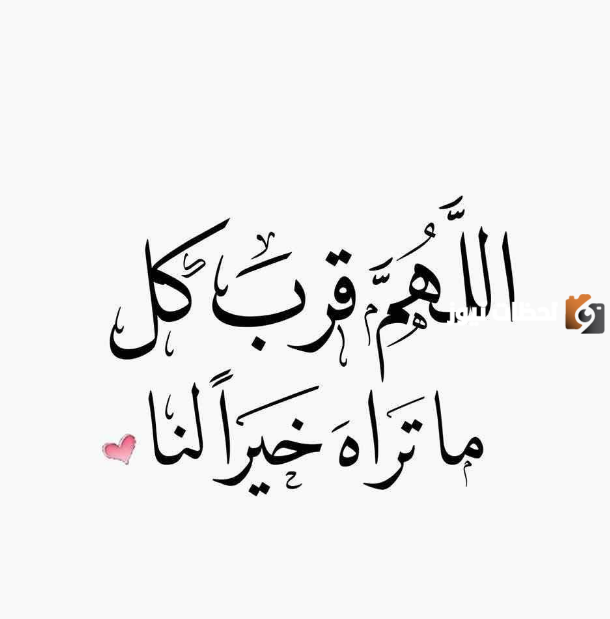 اللَّهُمَّ قربَ كل
ما تَراهَ خيَراً لنا
لحظات نيوز